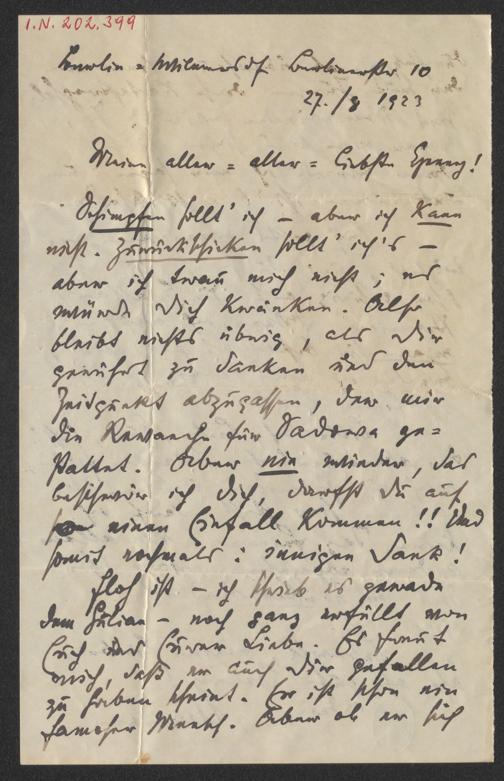 I.N. 202.399
Berlin = Wilmersdf. Berlinerstr 10
27./8 1923
Meine aller = aller = liebste !
Schimpfen sollt' ich – aber ich kann
nicht. Zurückschicken sollt' ich's –
aber ich trau mich nicht; es
würde Dich kränken. Also
bleibt nichts übrig, als Dir
gerührt zu danken und den
Zeitpunkt abzupassen, der mir
die Revanche für Sadowa ge=
stattet. Aber nie wieder, das
beschwör ich Dich, darfst Du auf
einen Einfall kommen!! Und
somit nochmals: innigen Dank!
ist – ich schrieb es gerade
dem Julian – noch ganz erfüllt von
Euch und Eurer Liebe. Es freut
mich, daß er auch Dir gefallen
zu haben scheint. Er ist schon ein
famoser Mensch. Aber ob er sich